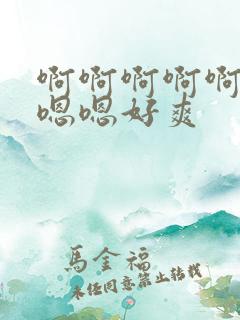 啊啊啊啊啊
嗯嗯好爽
馬金福
未经同意禁止转载